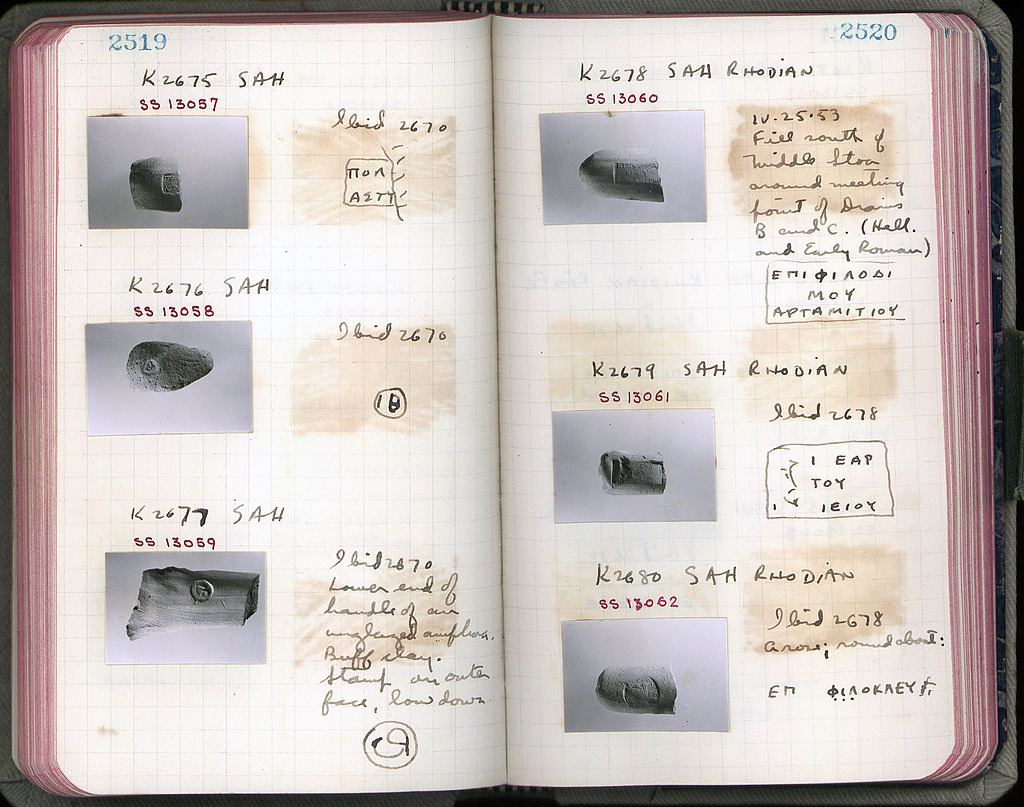 2519
K2675 SAH
SS 13057
Ibid 2670
ΠΟΛ
ΑΣΤΥ
K2676 SAH
SS 13058
Ibid 2670
K2677 SAH
SS 13059
Ibid 2670
Lower end of
handle of an
unglazed amphora.
Buff clay.
Stamp on outer
face, low down.
2520
K2678 SAH RHODIAN
SS 13060
IV.25.53
Fill south of
Middle Stoa
around meeting
point of Drains
B and C. (Hell.
and Early Roman)
ΕΠΙΦΙΛΟΔΙ
ΜΟΥ
ΑΡΤΑΜΙΤΙΟΥ
K2679 SAH RHODIAN
SS 13061
Ibid 2678
Ι ΕΑΡ
ΤΟΥ
Ι ΙΕΙΟΥ
K2680 SAH RHODIAN
SS 13062
Ibid 2678
a rose; round about:
ΕΠ ΦΙΛΟΚΛΕΥ